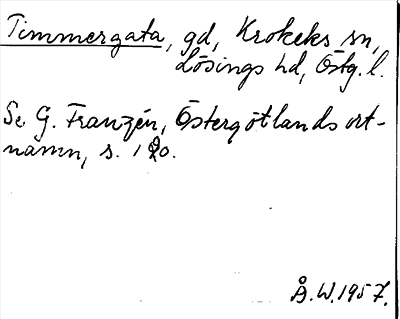 Timmergata, gd, Krokeks sn,
Lösings hd, Östg. l.
Se G. Franzén, Östergötlands ort-
namn, s. 120.
Å.W. 1957.